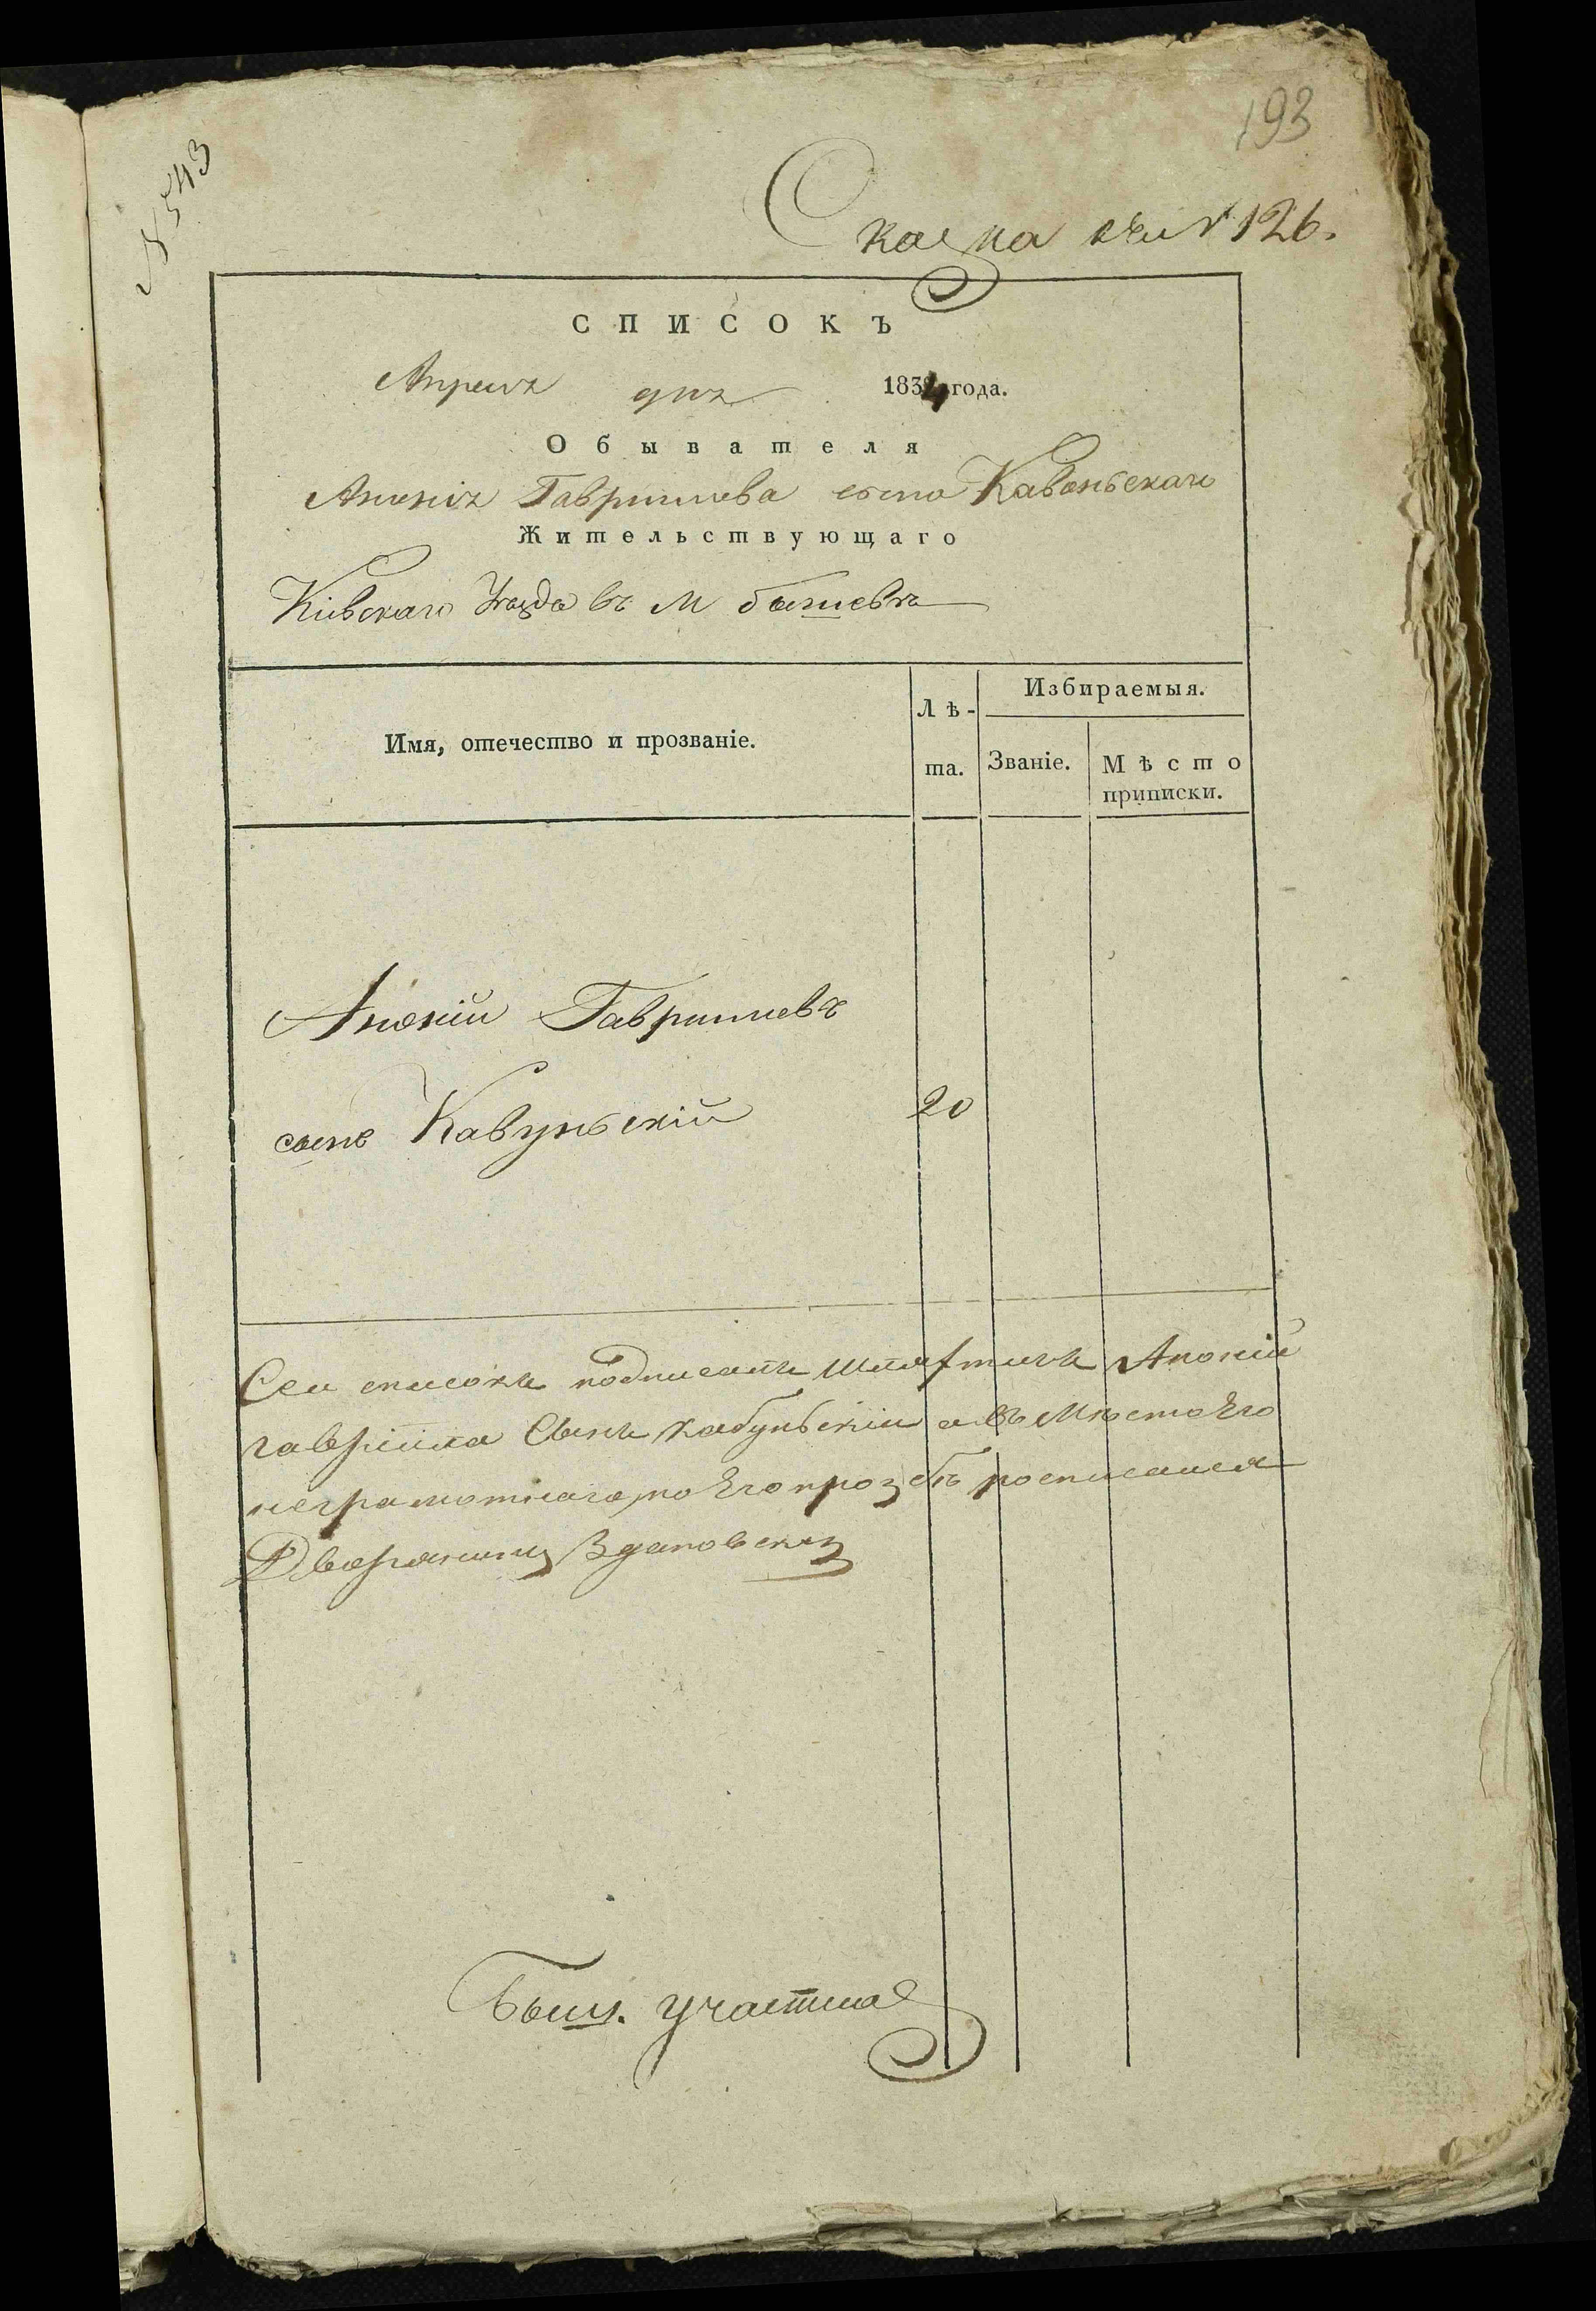 193
N 543
Сказка № 126.
СПИСОКЪ
Апреля дня 1834 года.
Обывателя
Анонія Гаврилова сына Кавоньскаго
Жительствующаго
Кіевскаго Уезда въ М Бышевѣ
Имя, отечество и прозваніе.
Лѣ-
та.
Избираемыя.
Званіе.
Мѣсто
приписки.
Аноній Гавриловъ
сынъ Кавуньскій 20
Сей списокъ подписалъ Шляхтичъ Аноній
гаврійла Сынъ кавуньскій а въ Мѣсто Его
неграмотнаго, по Его прозбѣ росписался
Дворянинъ Здановскій
Быш. участка